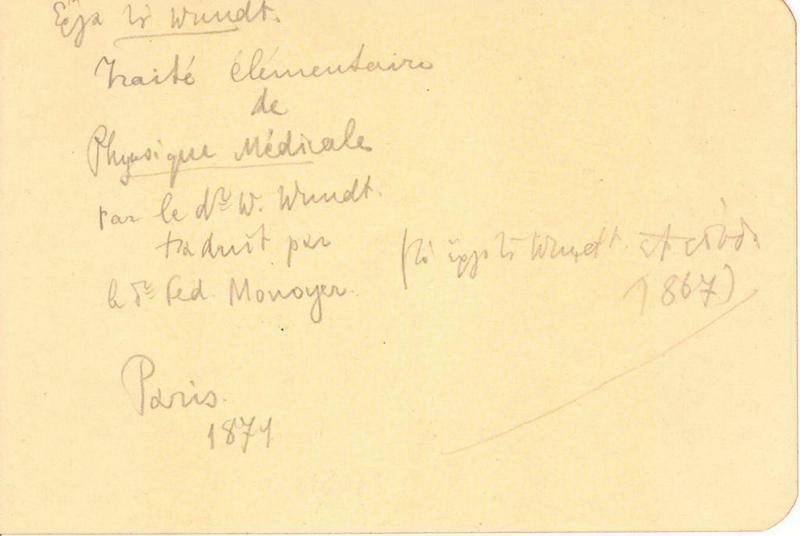 Ἔργα τοῦ Wundt.
Traité élémentaire
de
Physique Médicale
par le dʳ W. Wundt.
traduit par
(τὸ ἔργο τοῦ Wundt
le dʳ Fed Monoyer.
1867)
Paris.
1871